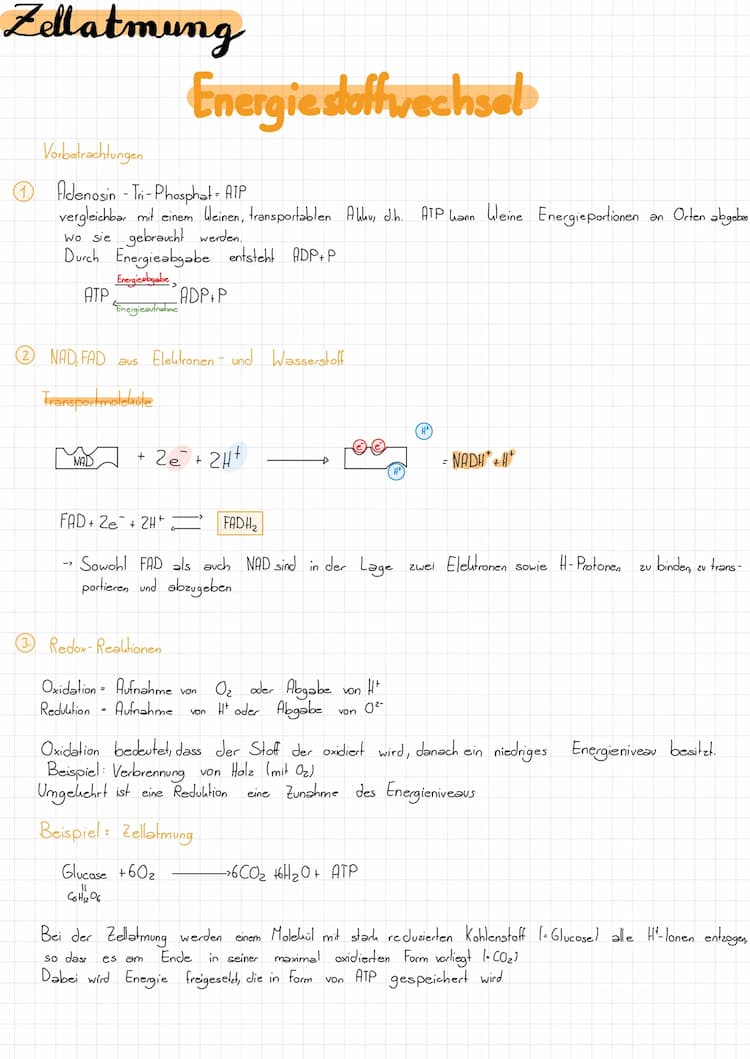 Zellatmung
Energiestoffwechsel
Vorbetrachtungen
① Adenosin - Tri - Phosphat = ATP
vergleichbar mit einem kleinen, transportablen Akku, d.h. ATP kann kleine Energieportionen an Orten abgeben
wo sie gebraucht werden.
Durch Energieabgabe entsteht ADP+P
Energieabgabe
ATP ADP+P
Energieaufnahme
② NAD, FAD aus Elektronen- und Wasserstoff
Transportmoleküle
H⁺
e⁻ e⁻
NAD + 2e⁻ + 2H⁺ → = NADH⁺ + H⁺
H⁺
FAD + 2e⁻ + 2H⁺ ⇌ FADH₂
→ Sowohl FAD als auch NAD sind in der Lage zwei Elektronen sowie H-Protonen zu binden, zu trans-
portieren und abzugeben
③. Redox-Reaktionen
Oxidation = Aufnahme von O₂ oder Abgabe von H⁺
Reduktion = Aufnahme von H⁺ oder Abgabe von O²⁻
Oxidation bedeutet, dass der Stoff der oxidiert wird, danach ein niedriges Energieniveau besitzt.
Beispiel: Verbrennung von Holz (mit O₂)
Umgekehrt ist eine Reduktion eine Zunahme des Energieniveaus
Beispiel: Zellatmung
Glucose + 6O₂ → 6CO₂ + 6H₂O + ATP
=
C₆H₁₂O₆
Bei der Zellatmung werden einem Molekül mit stark reduzierten Kohlenstoff (=Glucose) alle H⁺-Ionen entzogen,
so das es am Ende in seiner maximal oxidierten Form vorliegt (=CO₂)
Dabei wird Energie freigesetzt, die in Form von ATP gespeichert wird